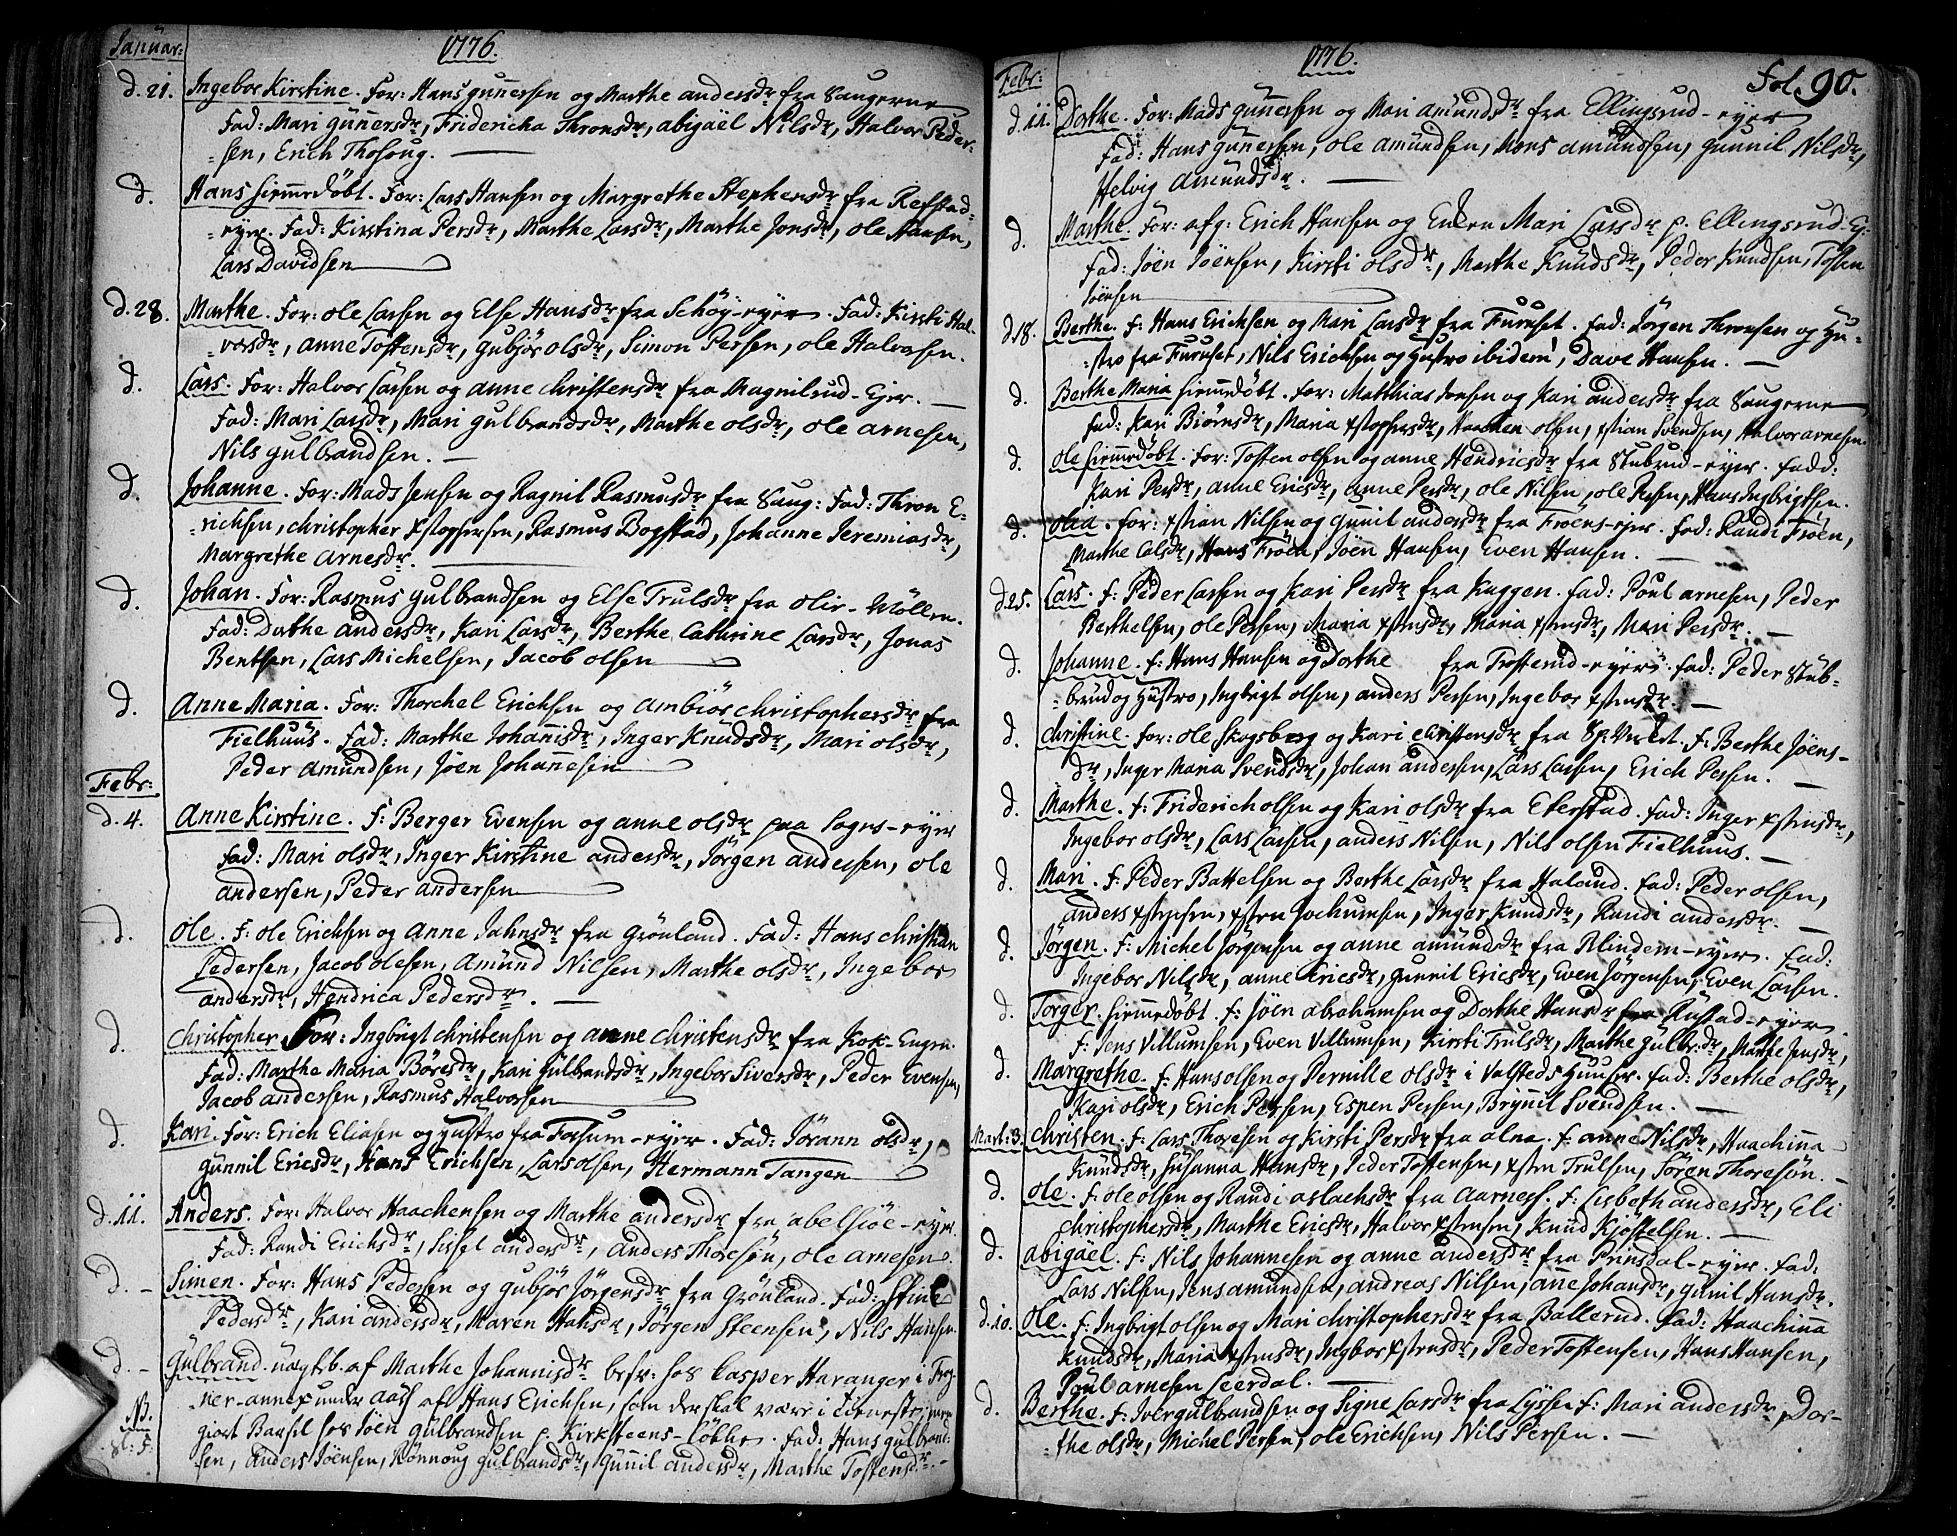 Januar: 1776.
d. 21. Ingebor Kirstine. For: Hans Gunnersen og Marthe andersdr fra Haugerne
Fad: Mari Gunnersdr, Fridericha Thronsdr, abigael Nilsdr, Halvor Peder-
-sen, Erich Thosoug.
d. Hans hiemmedøbt. For: Lars Hansen og Margrethe Stephensdr fra Refstad-
-eyer. Fad: Kirstina Persdr, Marthe Larsdr, Marthe Jonsdr, ole Hansen,
Lars Davidsen
d. 28. Marthe. For: ole Larsen og Else Hansdr fra Schöy-eyer. Fad: Kirsti Hal-
-vorsdr, Anne Tostensdr, Gubjör olsdr, Simon Persen, ole Halvorsen.
d. Lars. For: Halvor Larsen og anne Christensdr fra Magnilrud-Ejer.
Fad: Mari Larsdr, Mari Gulbrandsdr, Marthe olsdr, ole arnesen,
Nils Gulbrandsen.
d. Johanne. For: Mads Jensen og Ragnil Rasmusdr fra Haug: Fad: Thron E-
-richsen, Christopher Xstophersen, Rasmus Bogstad, Johanne Jeremiasdr,
Margrethe Arnesdr.
d. Johan. For: Rasmus Gulbrandsen og Else Trulsdr fra Olie-Möllen.
Fad: Dorthe Andersdr, Kari Larsdr, Berthe Cathrine Larsdr, Jonas
Bentsen, Lars Michelsen, Jacob olsen
d. Anne Maria. For: Thorchel Erichsen og Ambiör Christophersdr fra
Fielhuus. Fad: Marthe Johannisdr, Inger Knudsdr, Mari olsdr,
Peder Amundsen, Jöen Johannesen
Febr:
d. 4. Anne Kirstine. F: Berger Evensen og anne olsdr paa Sogns-eyer
Fad: Mari olsdr, Inger Kirstine andersdr, Jörgen andersen, ole
andersen, Peder andersen
d. Ole. F: ole Erichsen og Anne Jahnsdr fra Grönland. Fad: Hans Christian
Pedersen, Jacob olesen, Amund Nilsen, Marthe olsdr, Ingebor
andersdr, Hendrica Pedersdr.
d. Christopher. For: Ingbrigt Christensen og anne Christensdr fra Kok-Engen.
Fad: Marthe Maria Böresdr, Kari Gulbrandsdr, Ingebor Siversdr, Peder Evensen,
Jacob andersen, Rasmus Halvorsen
d. Kari. For: Erich Eliasen og Hustro fra Forsum-eyer. Fad: Jörann olsdr,
Gunnil Ericsdr, Hans Erichsen, Lars olsen, Hermann Tangen
d. 11. Anders. For: Halvor Haachensen og Marthe andersdr fra abelsöe-eyer.
Fad: Randi Erichsdr, Sissel andersdr, Anders Thoresön, ole arnesen.
d. - Simen. For: Hans Pedersen og Gubjör Jörgensdr fra Grönland. Fad: Stine
Pedersdr, Kari andersdr, Maren Hansdr, Jörgen Steensen, Nils Hansen.
d. - Gulbrand. uægtb. af Marthe Johannisdr besv: hos Casper Haranger i Frog-
NB. -ner-annex under Aas af Hans Erichsen, som der skal være i tieneste,
giort Barsel hos Jöen Gulbrandsen p. Kirksteens-Löbben. Fad: Hans Gulbrand-
sen, Anders Jöensen, Rönnoug Gulbrandsdr, Gunnil andersdr, Marthe Tostensdr.
Febr: 1776. Fol. 90.
d. 11. Dorthe. For: Mads Gunnersen og Mari Amundsdr fra Ellingsrud-eyer
Fad: Hans Gunnersen, ole Amundsen, Mons Amundsen, Gunnil Nilsdr,
Helvig Amundsdr.
d. Marthe. For: afg: Erich Hansen og Enken Mari Larsdr p. Ellingsrud-E:
Fad: Jöen Jöensen, Kirsti olsdr, Marthe Knudsdr, Peder Knudsen, Tosten
Jöensen
d. 18. Berthe. f: Hans Erichsen og Mari Larsdr fra Furuset. Fad: Jörgen Thronsen og Hu-
-stro fra Furuset, Nils Erichsen og Hustro ibidem, Dave Hansen.
d. Berthe Maria hiemmedøbt. For: Matthias Jonsen og Kari andersdr fra Haugerne
Fad: Kari Biörnsdr, Maria Xstophersdr, Haachen olsen, Xstian Svendsen, Halvor arnesen.
d. Ole hiemmedøbt. For: Tosten olsen og anne Hendricsdr fra Stubrud-eyer. Fadd:
Kari Persdr, anne Ericsdr, Anne Persdr, ole Nilsen, ole Persen, Hans Ingbrigtsen.
d. Olea. For: Xstian Nilsen og Gunnil andersdr fra Fröens-ejer. Fad: Randi Fröen,
Marthe Colsdr, Hans Fröen, Jöen Hansen, Even Hansen.
d. 25. Lars. f: Peder Larsen og Kari Persdr fra Kaggen. Fad: Poul arnesen, Peder
Berthelsen, ole Persen, Maria Xstensdr, Maria Xstensdr, Mari Persdr.
d. Johanne. f: Hans Hansen og Dorthe fra Trosterud-eyere. Fad: Peder Stub-
-brud og Hustro, Ingbrigt olsen, anders Persen, Ingebor Xstensdr.
d. Christine. For: ole Skogsberg og Kari Christensdr fra . f: Berthe Jöens-
dr, Inger Maria Svendsdr, Johan andersen, Lars Larsen, Erich Persen.
d. Marthe. f: Friderich olsen og Kari olsdr fra Ekerstad. Fad: Inger Xstensdr,
Ingebor olsdr, Lars Larsen, anders Nilsen, Nils olsen Fielhuus.
d. Mari. f: Peder Battelsen og Berthe Larsdr fra Haland. Fad: Peder olsen,
anders Xstensen, Xsten Jochumsen, Inger Knudsdr, Randi andersdr.
d. Jörgen. F: Michel Jörgensen og anne amundsdr fra Blindern-eyer. Fad:
Ingebor Nilsdr, anne Ericsdr, Gunnil Ericsdr, Even Jörgensen, Even Larsen.
d. Torger. hiemmedøbt. f: Jöen abrahamsen og Dorthe Hansdr fra Rustad-eyer.
f: Jens Villumsen, Even Villumsen, Kirsti Trulsdr, Marthe Gulbr:dr, Marthe Jensdr,
d. Margrethe. f: Hans olsen og Pernille olsdr i Valsteds Huuser. Fad: Berthe olsdr,
Kari olsdr, Erich Persen, Espen Persen, Brynnil Svendsen.
Mart: 3. Christen. f: Lars Thoresen og Kirsti Persdr fra alna. f: anne Nilsdr, Haachinna
Knudsdr, Susanna Hansdr, Peder Tostensen, Xsten Trulsen, Sören Thoresön.
d. Ole. f: ole olsen og Randi aslachsdr fra Aarness. f: Lisbeth andersdr, Eli
Christophersdr, Marthe Ericsdr, Halvor Xstensen, Knud Kjöstelsen.
d. Abigael. f: Nils Johannesen og anne andersdr fra Prinsdal-eyer. Fad:
Lars Nilsen, Jens amundsen, andreas Nilsen, ane Johansdr, Gunil Hansdr.
d. 10. Ole. f: Ingbrigt olsen og Mari Christophersdr fra Ballerud. Fad: Haachinna
Knudsdr, Maria Xstensdr, Ingbor Xstensdr, Peder Tostensen, Hans Hansen,
Poul arnesen Leerdal.
d. Berthe. f: Iver Gulbrandsen og Signe Larsdr fra Lysse. f: Mari andersdr, Dor-
-the olsdr, Michel Persen, ole Erichsen, Nils Persen.